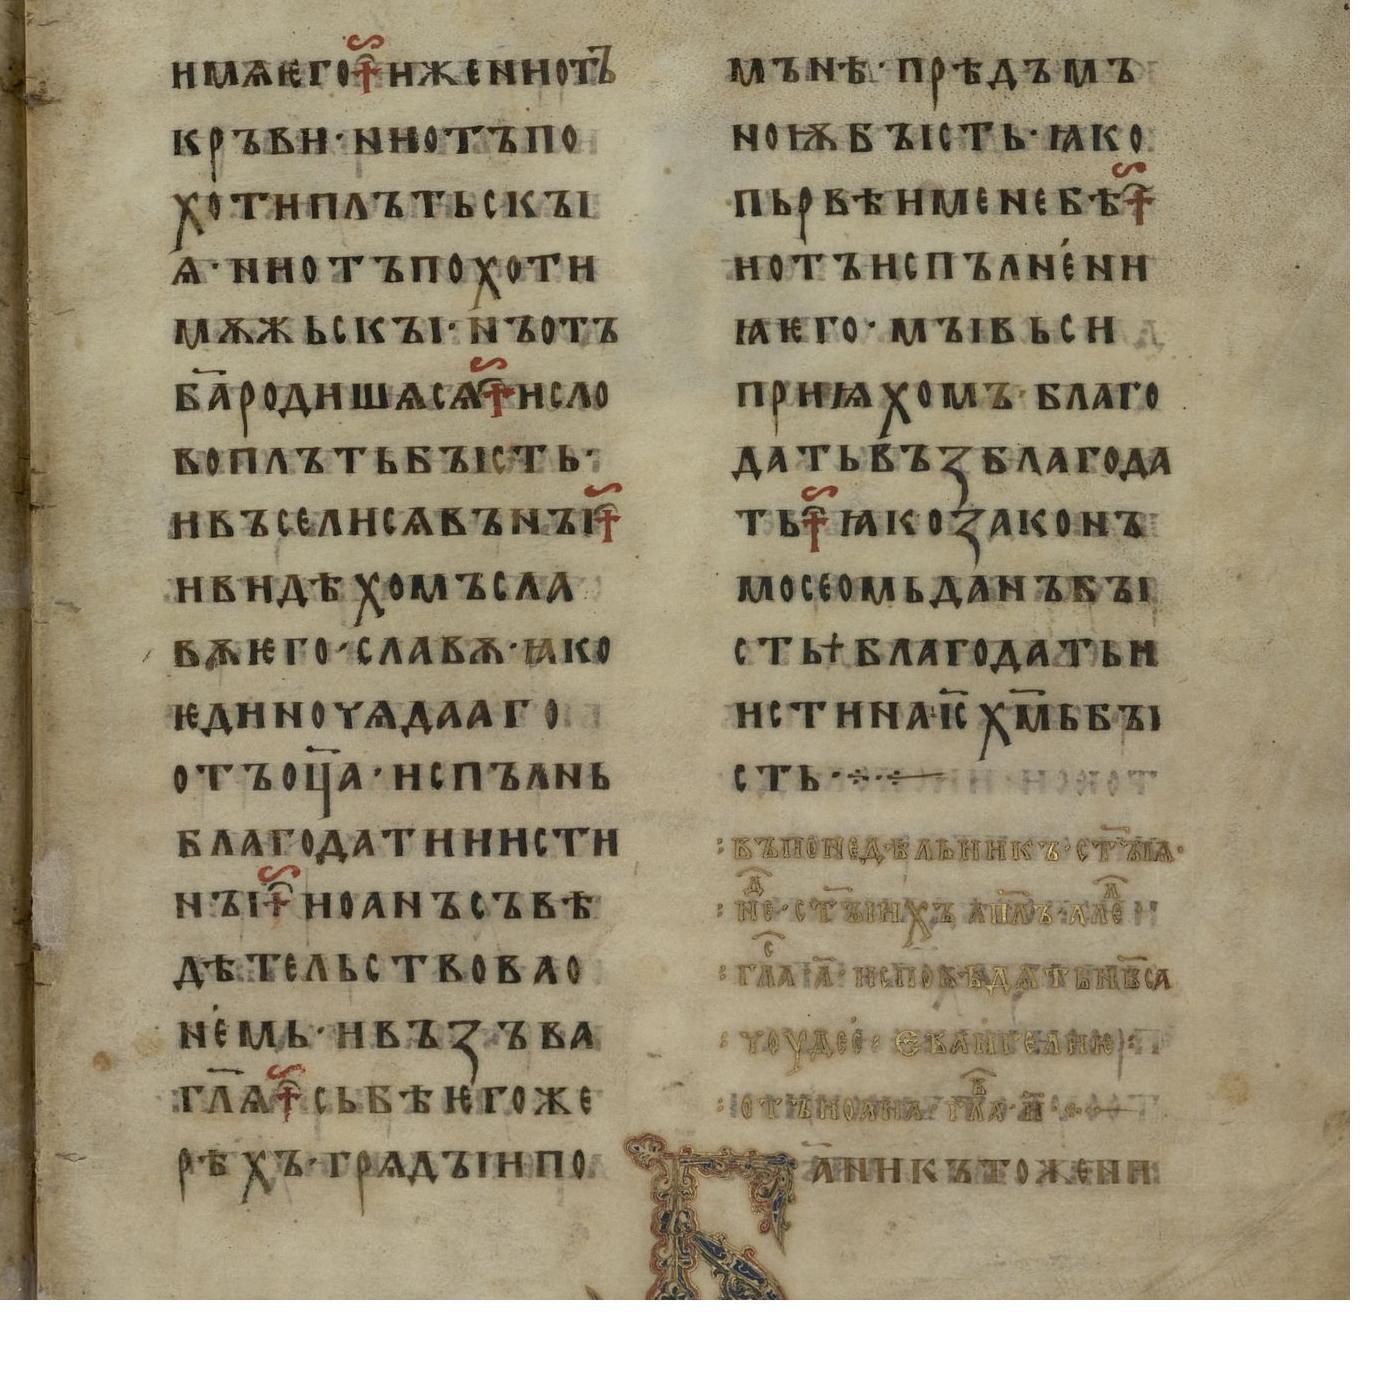 имѧѥго ⁘иженнотъ
кръви·ниотъпо
хотиплътьскꙑ
ѩ·ниотъпохоти
мѫжьскꙑ·нъотъ
б҃ародишѧсѧ ⁘исло
воплътьбꙑсть·
ивъселисѧвънꙑ
ивидѣхомъсла
вѫѥго·славѫ·ꙗко
ѥдиноѹѧдааго
отъоц҃а·испълнь
благодатиинсти
нꙑ иоанъсъвѣ
дѣтельствовао
немь·ивъзъва
гл҃ѧ сьбѣѥгоже
рѣхъ·грѧдꙑипо
мънѣ·прѣдъмъ
ноѭбꙑсть·ꙗко
пьрвѣименебѣ
иотъиспълнени
ꙗѥго·мꙑвьси
приѩхомъ·благо
датьвъзблагода
ть ꙗкозаконъ
мосеомьданъбꙑ
сть+благодатьи
истинаі҃с х҃мьбꙑ
сть·
:въпонедѣльникъ·ст҃ꙑѩ·
:не҃·ст҃ꙑихъ ап҃лъ·але
:гл҃а а҃·исповѣдѧтьнб҃са
:ѹоудес:Евангелиѥ:
:отъиоана·гл҃а·и҃·
Б҃аникътожени